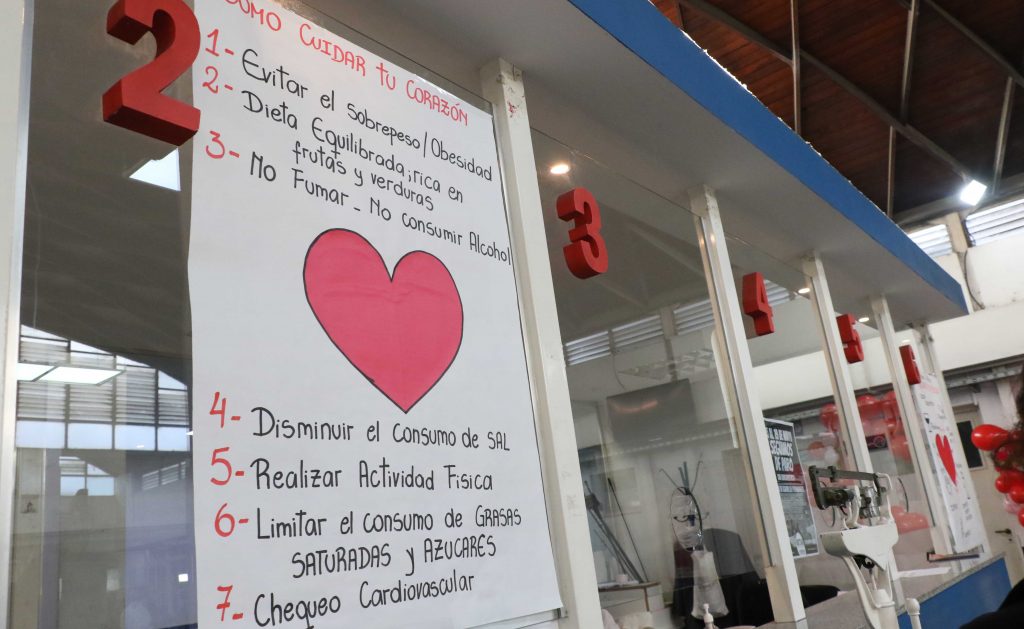 COMO CUIDAR tU CORAZÓN
1- Evitar el Sobrepeso/Obesidad
2- Dieta Equilibrada; rica en
frutas y verduras
3- No Fumar - No consumir Alcohol
4- Disminuir el consumo de SAL
5- Realizar Actividad Fisica
6- Limitar el consumo de GRASAS
SATURADAS y AZUCARES
7- Chequeo Cardiovascular
2
3
4
5
SEGUIMOS
DE PARO